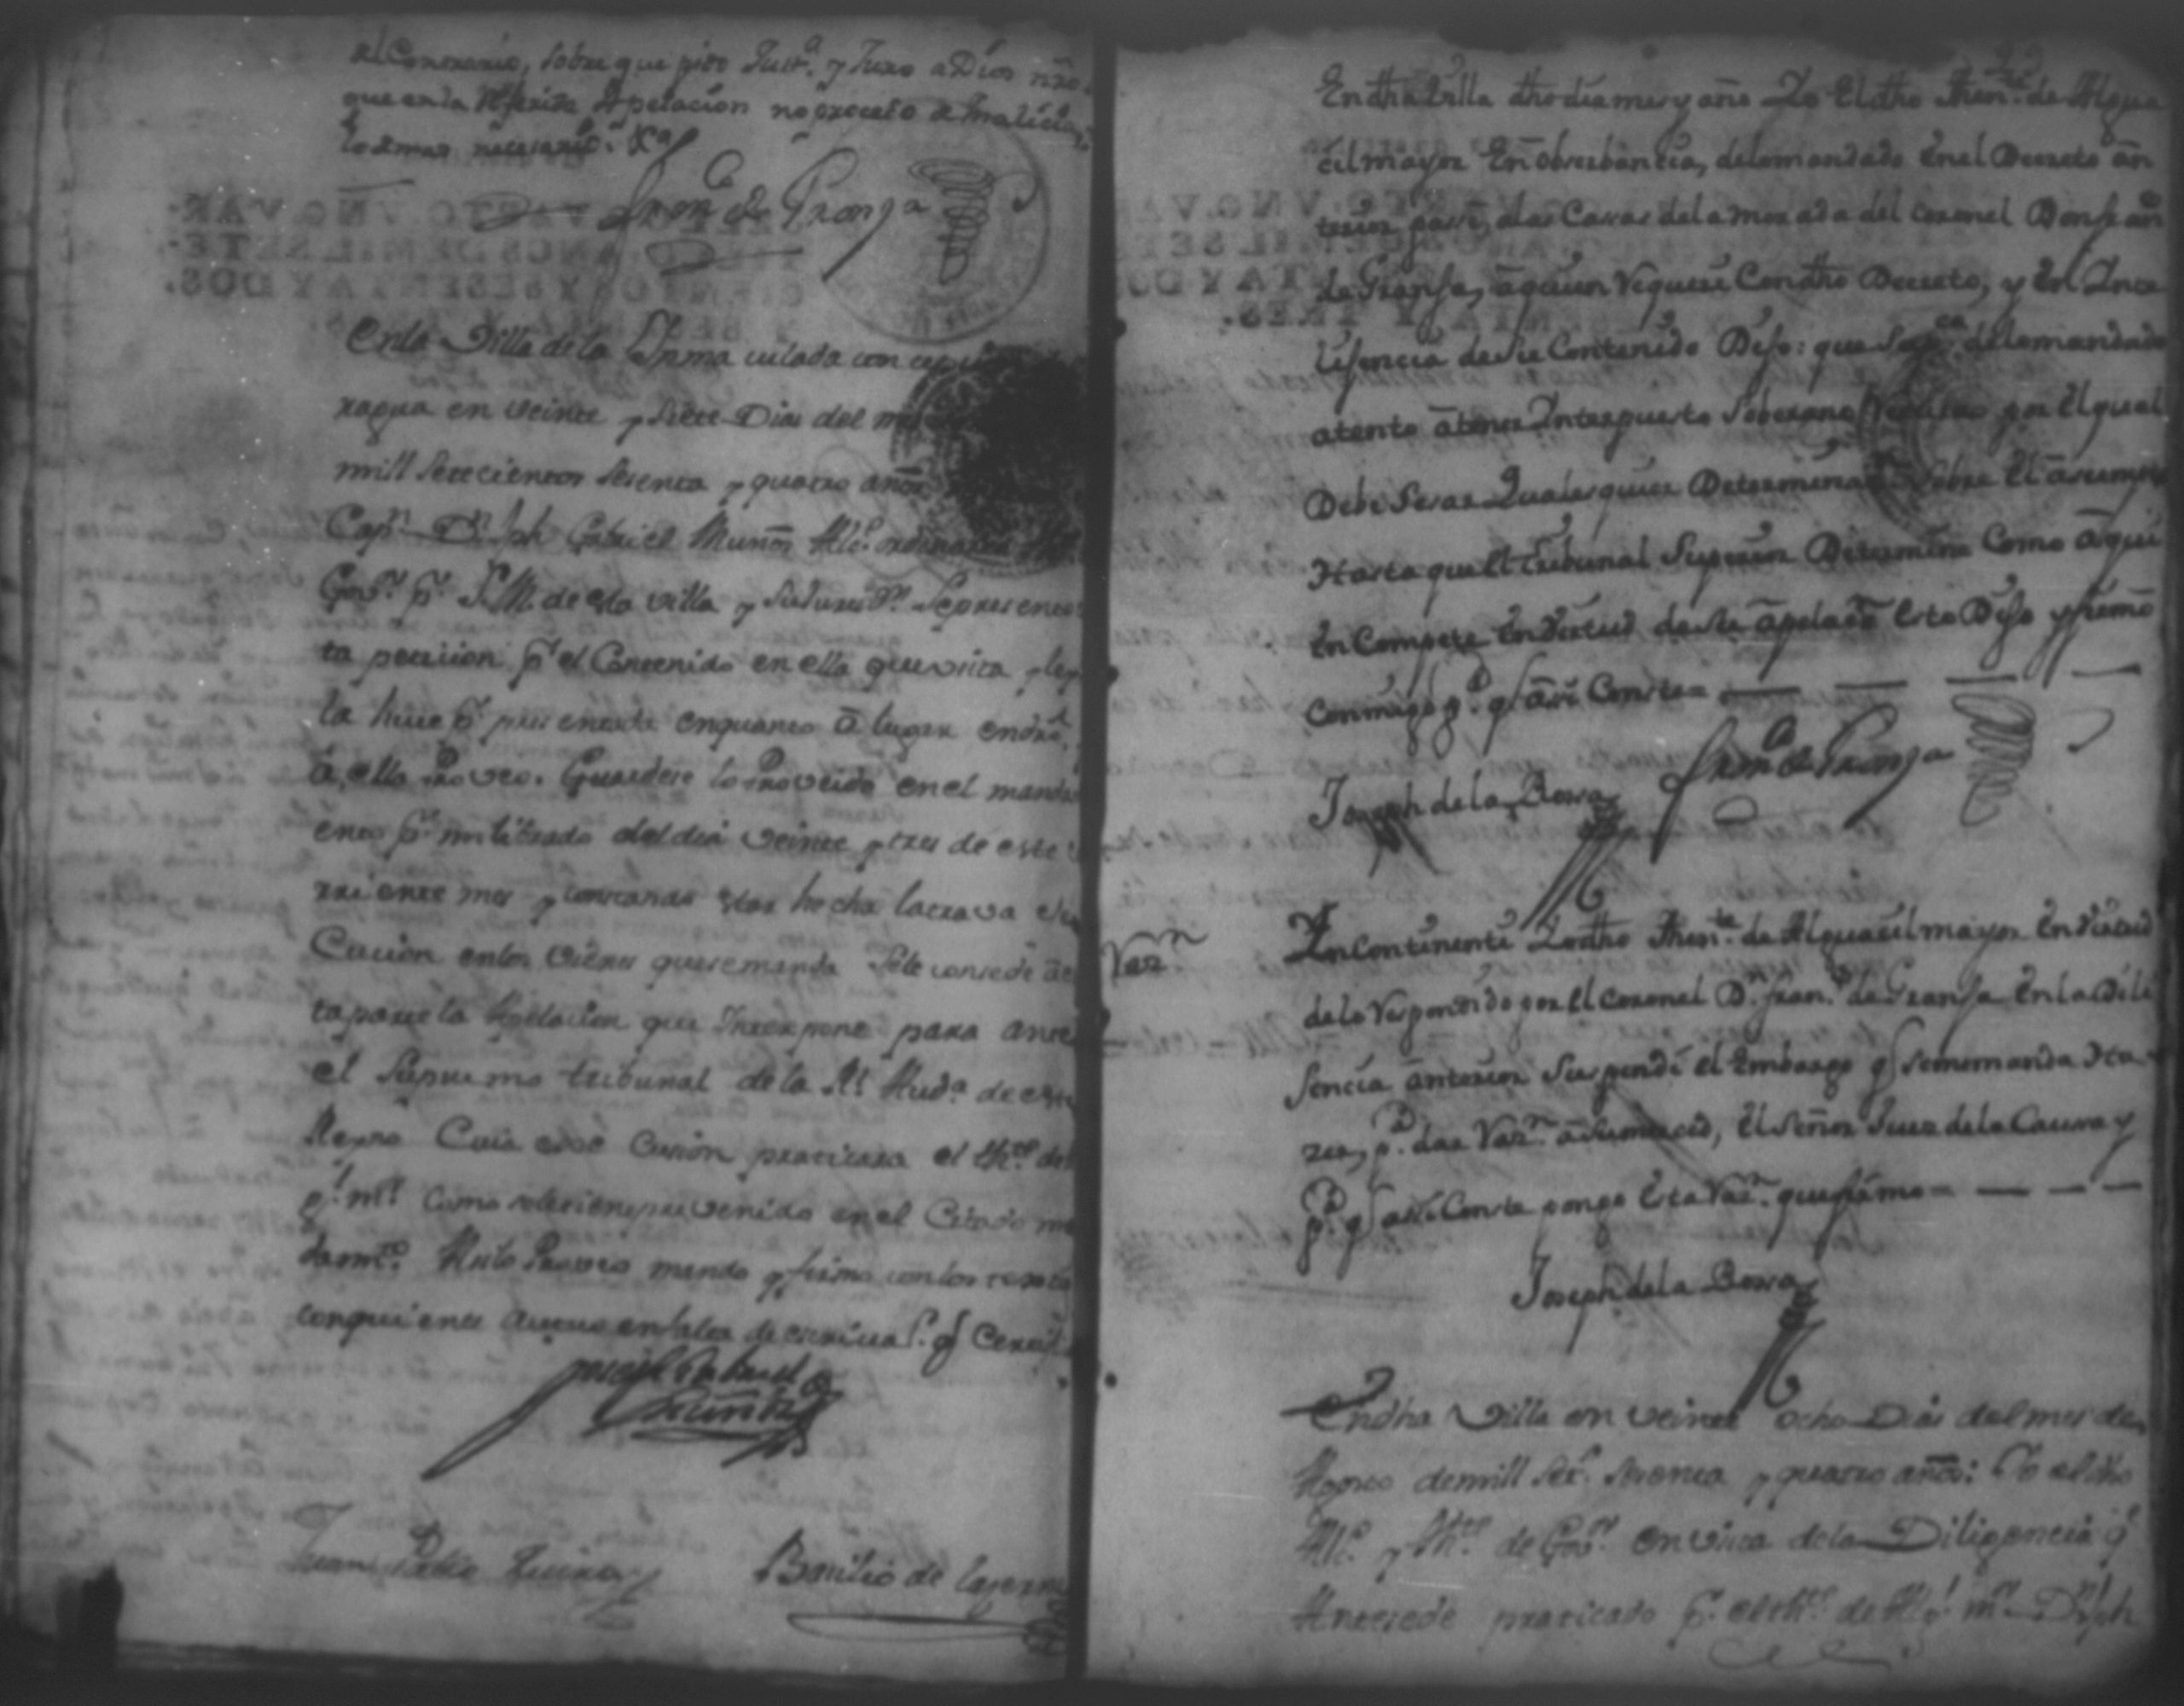 al Contrario, sobre que pido Just.ª y Juro a Dios nro
que en la Referida Apelacion no procedo de malicia,
lo demas necesario &.ª
Fran.co de Granja
En la Villa de la Inma culada con cep
ragua en veinte y siete Dias del mes
mill setecientos sesenta y quatro años
Cap.n D.n Jph Gabriel Muñoz Alc.e ordinario
Gov.or p.r S.M. de esta villa y su Jurisd.n Se presento
ta peticion p.r el Contenido en ella que vista y ley
la huve p.r presentada en quanto ā lugar en dro.
â, ella Proveo. Guardese lo Proveido en el manda
ento p.r mi librado del dia veinte y tres de este
rriente mes y constando estar hecha la trava
Cucion en los vienes que se manda Se le consede
ta parte la Apelacion que Interpone para ante
el Supremo tribunal de la R.l Aud.ª de este
Reyno Cuia exe Cusion practicara el th.te del
g.l m.r Como se le tiene prevenido en el Citado m
dam.to Auto Proveo mando y firmo con los testi
con quienes Actuo en falta de escriva.s q̃ Certif
Joseph Gabriel
Muñoz
Juan Pablo
Basilio de
En dha Villa dho dia mes y año Yo El dho Then.te de Algua
cil mayor En observancia, de lo mandado En el Decreto an
terior pasé, a las Casas de la morada del Coronel Don fran.co
de Granja, a quien Requeri Con dho Decreto, y En Inte
lijencia de su Contenido Dijo: que de lo mandado
atento â tener Interpuesto Soberano Recurso por El qual
Debe Sesar Quales quier Determina Sobre El asumpto
Hasta que El tribunal Superior Determine Como âqui
En Compete En Virtud de su apelaōn Esto Dijo y firmó
Conmigo p.ª q̃ asi Conste=
Joseph de la Rosa
Fran.co de Granja
Raz.n
In Continenti Yo dho Then.te de Alguacil mayor En Virtud
de lo Respondido por El Coronel D.n fran.co de Granja En la Dili
Jencia anterior Suspendi el Embargo q̃ se me manda Ha
zer, p.ª dar Raz.n a Su merced, El Señor Juez de la Causa y
p.ª q̃ asi Conste pongo Esta Raz.n que firmo=
Joseph de la Rosa
En dha Villa en veinte ocho Dias del mes de
Agosto de mill Set.s Sesenta y quatro años: Yo el dho
Alc.e y th.te de Gov.or en vista de la Diligencia q̃
Antesede practicado p.r el th.te de Alg.l m.r D.n Jph